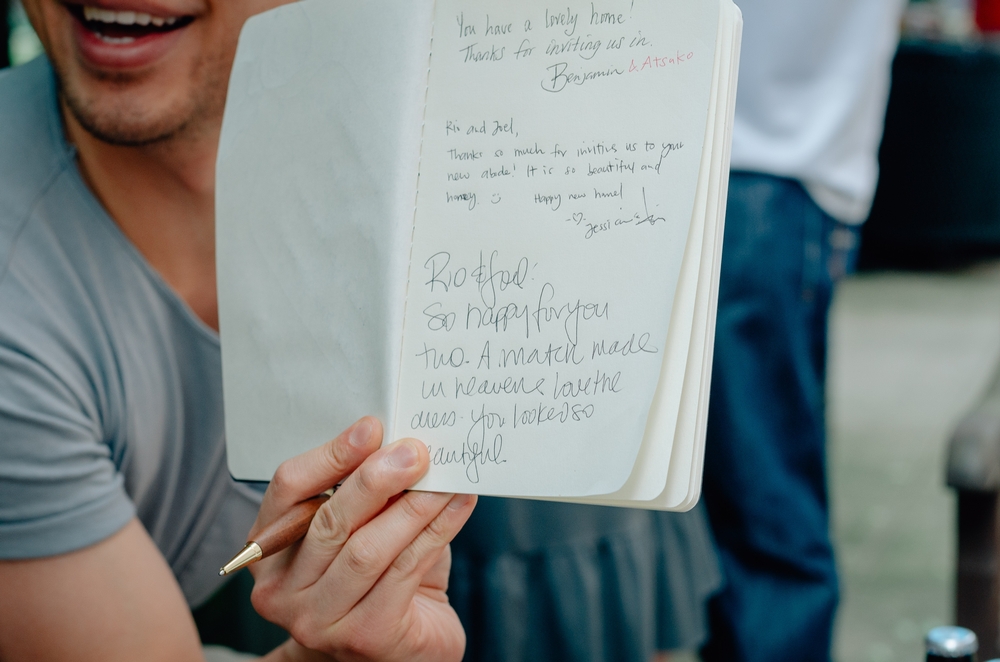 You have a lovely home!
Thanks for inviting us in.
Benjamin & Atsuko
Rio and Joel,
Thanks so much for inviting us to your
new abode! It is so beautiful and
homey. Happy new home!
Jessica
Rio & Joel:
So happy for you
two. A match made
in heaven. I love the
dress. You looked so
eautiful.